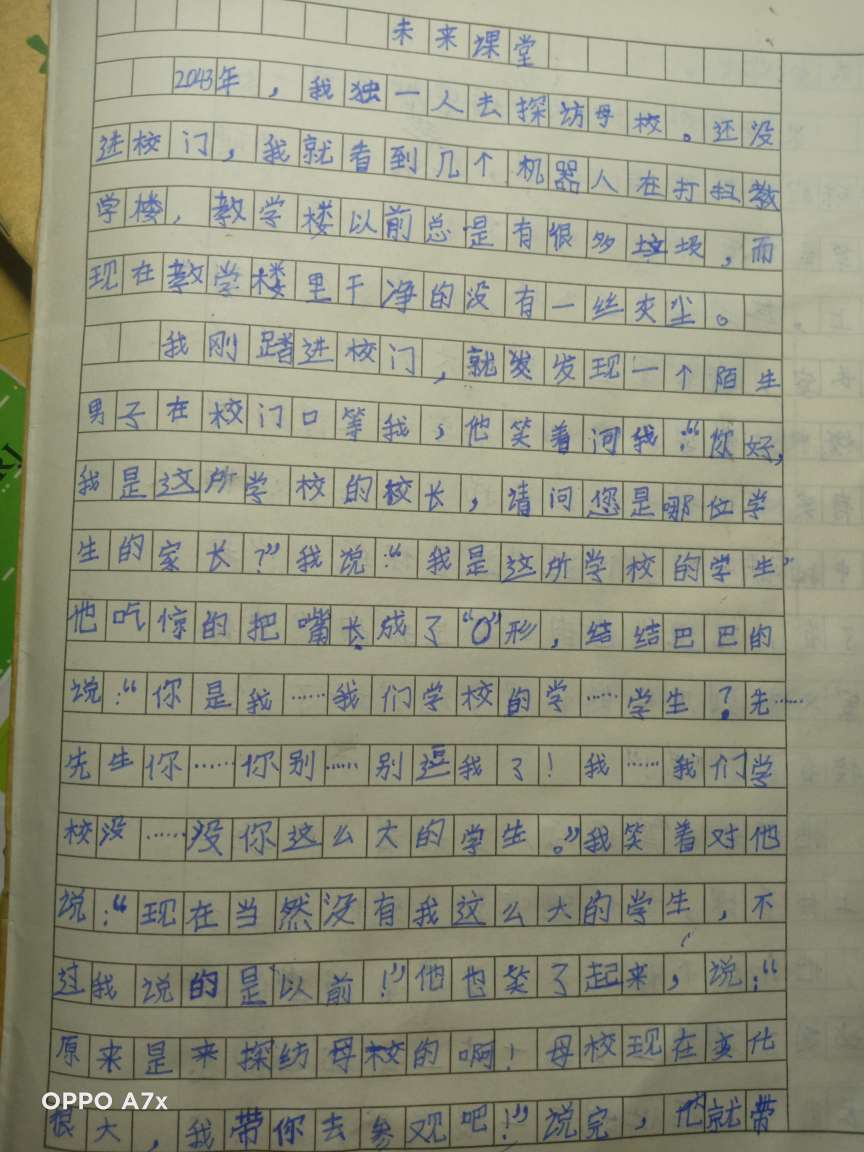 未来课堂
2043年，我独一人去探访母校。还没
进校门，我就看到几个机器人在打扫教
学楼，教学楼以前总是有很多垃圾，而
现在教学楼里干净的没有一丝灰尘。
我刚踏进校门，就发发现一个陌生
男子在校门口等我，他笑着问我：“你好，
我是这所学校的校长，请问您是哪位学
生的家长？”我说：“我是这所学校的学生”
他吃惊的把嘴长成了“O”形，结结巴巴的
说：“你是我……我们学校的学……学生？先……
先生你……你别……别逗我了！我……我们学
校没……没你这么大的学生。”我笑着对他
说：“现在当然没有我这么大的学生，不
过我说的是以前！”他也笑了起来，说：“
原来是来探纺母校的啊！母校现在变化
很大，我带你去参观吧！”说完，他就带
OPPO A7x